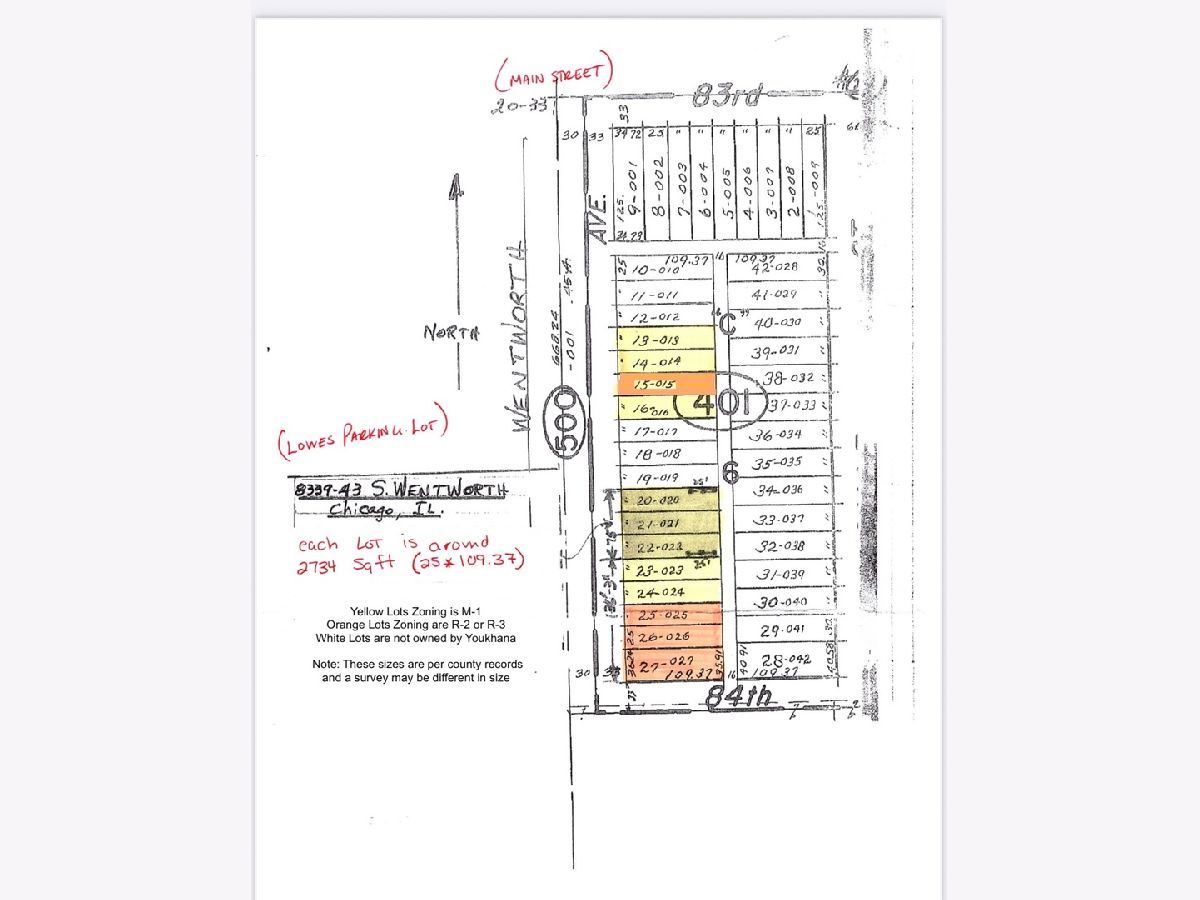 (MAIN STREET)
20-33
83rd
30 33 33
34 72 25 " " " " " " 25
AVE.
125.
9-001
8-002
7-003
6-004
5-005
4-006
3-007
2-008
1-009
125.
NORTH
WENTWORTH
668.24
-001
500
25 109.37 16 109.37
10-010 42-028
11-011 41-029
12-012 "C" 40-030
13-013 39-031
14-014 38-032
15-015 401 37-033
16-016 36-034
17-017 35-035
18-018 6 34-036
19-019 25' 33-037
20-020 32-038
21-021 31-039
22-022 25' 30-040
23-023 29-041
24-024 28-042
25-025 109.37
26-026
27-027
109.37 16
(LOWES PARKING LOT)
8339-43 S. WENTWORTH
Chicago, IL.
each Lot is around
2734 Sqft (25*109.37)
Yellow Lots Zoning is M-1
Orange Lots Zoning are R-2 or R-3
White Lots are not owned by Youkhana
Note: These sizes are per county records
and a survey may be different in size
30 33
84th